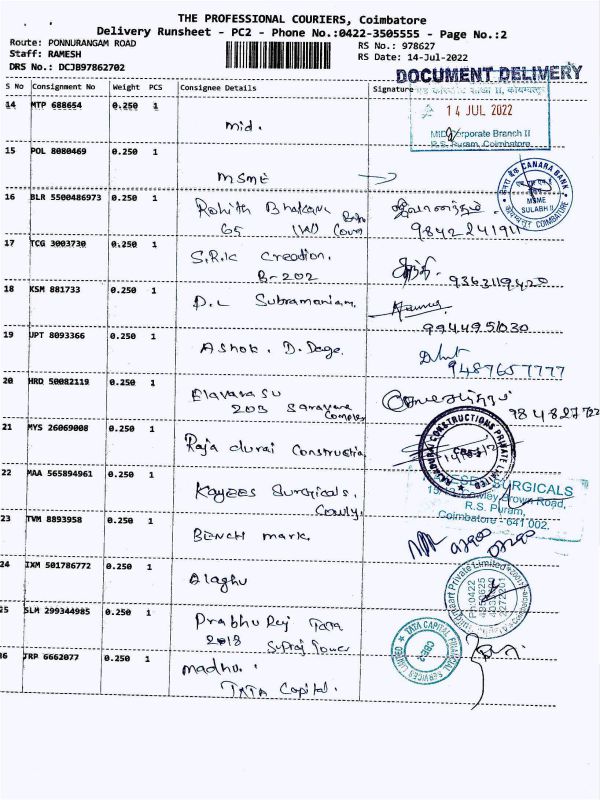 THE PROFESSIONAL COURIERS, Coimbatore
Delivery Runsheet - PC2 - Phone No.:0422-3505555 - Page No.:2
Route: PONNURANGAM ROAD
RS No.: 978627
Staff: RAMESH
RS Date: 14-Jul-2022
DRS No.: DCJB97862702
DOCUMENT DELIVERY
S No Consignment No Weight PCS Consignee Details Signature
14 MTP 688654 0.250 1
Mid.
14 JUL 2022
Corporate Branch II
R.S. Puram, Coimbatore
15 POL 8080469 0.250 1
MSME
CANARA BANK
MSME
SULABH II
COIMBATORE
16 BLR 5500486973 0.250 1
Rohith
65
9842241911
17 TCG 3003730 0.250 1
S.R.K Creation.
B-202
9363119420
18 KSM 881733 0.250 1
D.L Subramaniam.
9944951030
19 UPT 8093366 0.250 1
Ashok. D. Doge.
9487657777
20 HRD 50082119 0.250 1
Elavarasu
203 Saravana
Complex
984882772
21 MYS 26069008 0.250 1
Raja durai Constructio
CONSTRUCTIONS PRIVATE LIMITED
22 MAA 565894961 0.250 1
Kayzees Surgicals.
Cowly.
SURGICALS
Cowley Brown Road,
R.S. Puram,
Coimbatore - 641 002.
23 TVM 8893958 0.250 1
Bench mark.
24 IXM 501786772 0.250 1
Alaghu
Private Limited
Ph:0422
25 SLM 299344985 0.250 1
Prabhu Raj Tata
2018 Supraj Tower
TATA CAPITAL FINANCIAL SERVICES LIMITED
CBE-2
26 TRP 6662077 0.250 1
madhu.
TATA Capital.